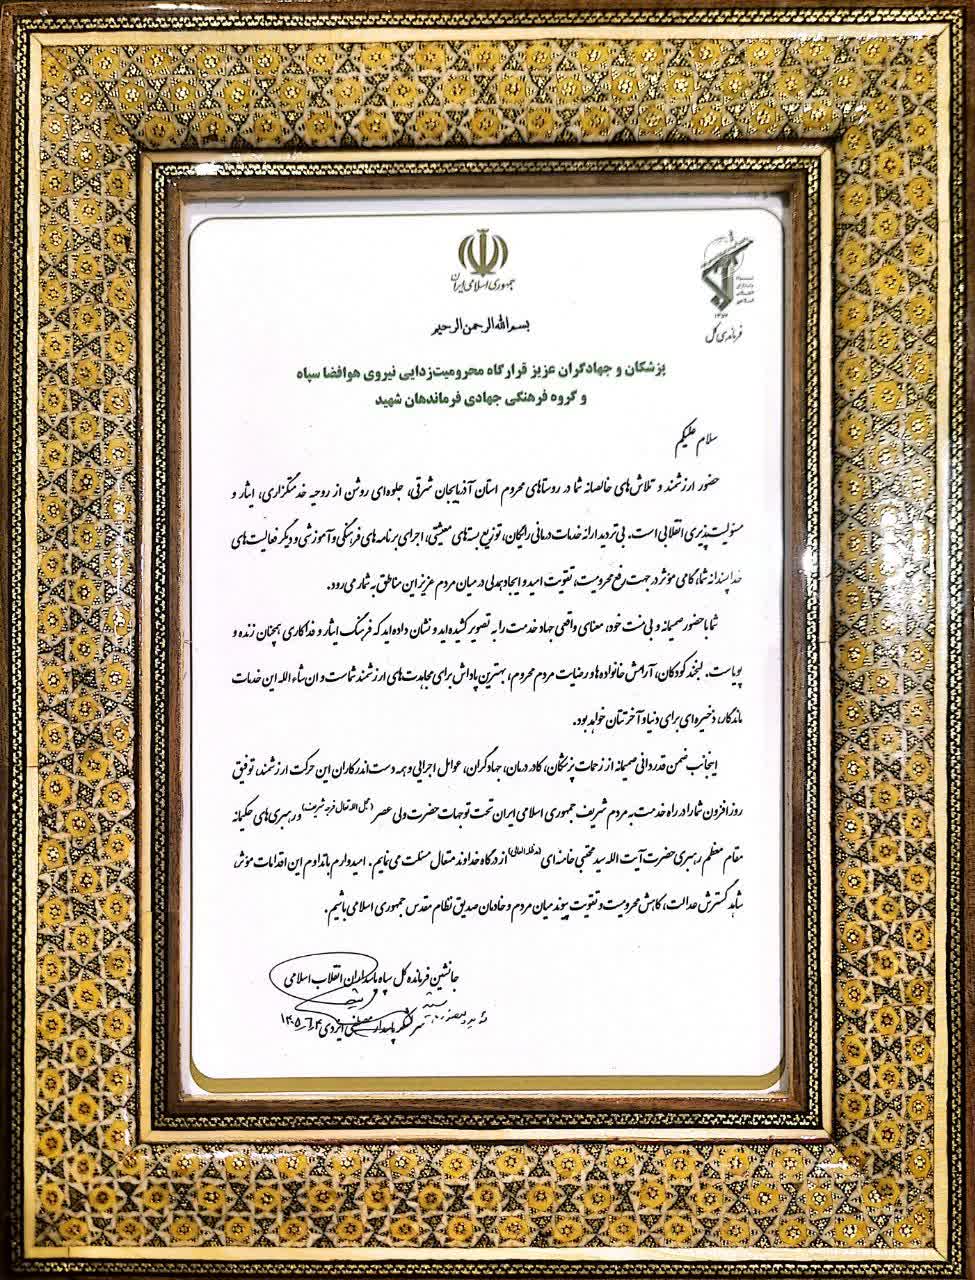 جمهوری اسلامی ایران
۱۳۵۷
فرماندهی کل
بسم الله الرحمن الرحیم
پزشکان و جهادگران عزیز قرارگاه محرومیت‌زدایی نیروی هوافضا سپاه
و گروه فرهنگی جهادی فرماندهان شهید
سلام علیکم
حضور ارزشمند و تلاش‌های خالصانه شما در روستاهای محروم استان آذربایجان شرقی، جلوه‌ای روشن از روحیه خدمتگزاری، ایثار و
مسئولیت‌پذیری انقلابی است. بی‌تردید ارائه خدمات درمانی رایگان، توزیع بسته‌های معیشتی، اجرای برنامه‌های فرهنگی و آموزشی و دیگر فعالیت‌های
خداپسندانه شما، گامی مؤثر در جهت رفع محرومیت، تقویت امید و ایجاد همدلی در میان مردم عزیز این مناطق به شمار می‌رود.
شما با حضور صمیمانه و بی‌منت خود، معنای واقعی جهاد خدمت را به تصویر کشیده‌اید و نشان داده‌اید که فرهنگ ایثار و فداکاری همچنان زنده و
پویاست. لبخند کودکان، آرامش خانواده‌ها و رضایت مردم محروم، بهترین پاداش برای مجاهدت‌های ارزشمند شماست و ان شاءالله این خدمات
ماندگار، ذخیره‌ای برای دنیا و آخرتتان خواهد بود.
اینجانب ضمن قدردانی صمیمانه از زحمات پزشکان، کادر درمان، جهادگران، عوامل اجرایی و همه دست‌اندرکاران این حرکت ارزشمند، توفیق
روزافزون شما را در راه خدمت به مردم شریف جمهوری اسلامی ایران تحت توجهات حضرت ولی عصر (عجل الله تعالی فرجه الشریف) و رهبری‌های حکیمانه
مقام معظم رهبری حضرت آیت الله سید مجتبی خامنه‌ای (مدظله العالی) از درگاه خداوند متعال مسئلت می‌نمایم. امیدوارم با تداوم این اقدامات مؤثر،
شاهد گسترش عدالت، کاهش محرومیت و تقویت پیوند میان مردم و خادمان صدیق نظام مقدس جمهوری اسلامی باشیم.
جانشین فرمانده کل سپاه پاسداران انقلاب اسلامی
سرلشکر پاسدار ایزدی